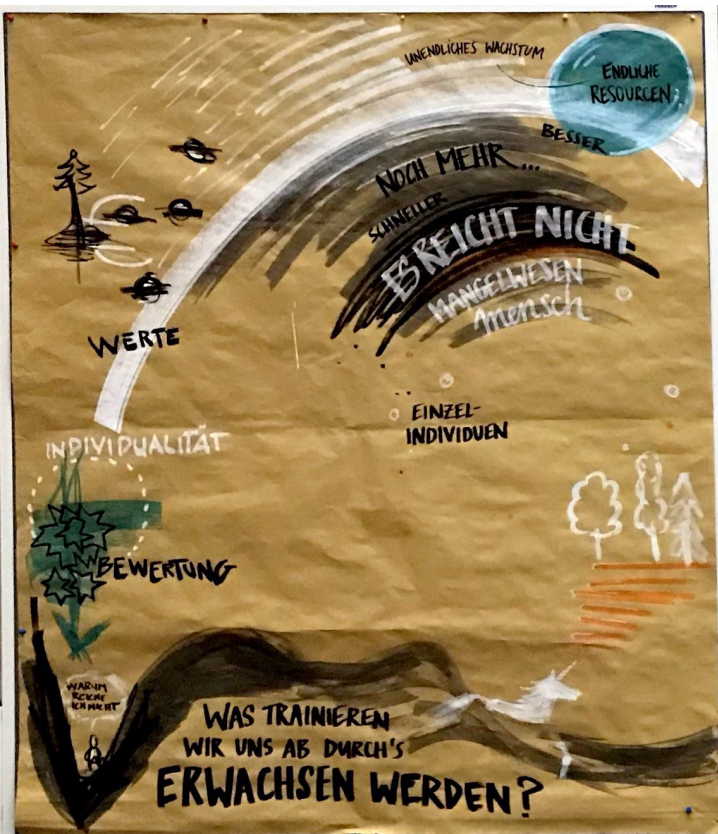 UNENDLICHES WACHSTUM
ENDLICHE
RESOURCEN
BESSER
NOCH MEHR...
SCHNELLER
ES REICHT NICHT
MANGELWESEN
mensch
€
WERTE
EINZEL-
INDIVIDUEN
INDIVIDUALITÄT
BEWERTUNG
WARUM
REICHE
ICH NICHT
WAS TRAINIEREN
WIR UNS AB DURCH'S
ERWACHSEN WERDEN?